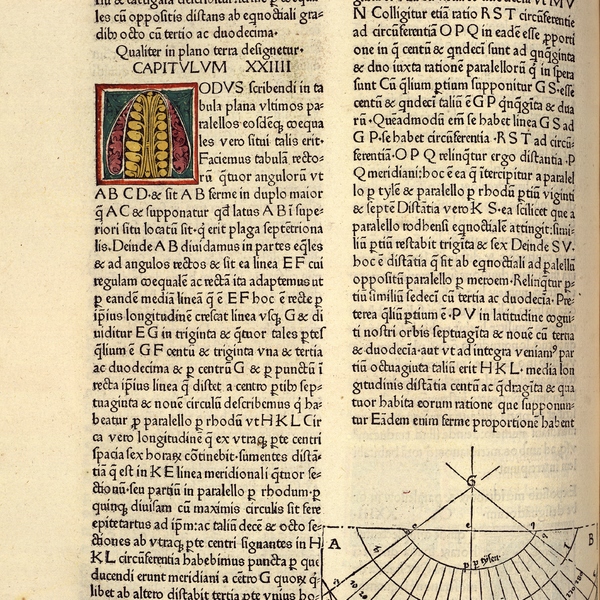 les cū oppositis distans ab eqnoctiali gra-
dibꝰ octo cū tertio ac duodecima·
Qualiter in plano terra designetur·
CAPITVLVM XXIIII
ODVS scribendi in ta
bula plana vltimos pa-
ralellos eosdēqꝫ coequa
les vero situi talis erit·
Faciemus tabulā recto-
rū q̄tuor angulorū vt
A B C D· & sit A B ferme in duplo maior
q̄ A C & supponatur qd̄ latus A B ī supe-
riori situ locatū sit· q erit plaga septētriona
lis. Deinde A B diuidamus in partes eq̄les
& ad angulos rectos & sit ea linea E F cui
regulam coequalē ac rectā ita adaptemus ut
ꝑ eandē mediā linea q̄ ē E F hoc ē recte ꝑ
ipius longitudinē crescat linea vsqꝫ G & di
uiditur E G in triginta & q̄tuor tales ptes
q̄lium ē G F centū & triginta vna & tertia
ac duodecima & ꝑ centrū G & ꝑ punctū ī
recta ipius linea q distet a centro ptibꝰ sep-
tuaginta & nouē circulū describemus q ha-
beatur ꝑ paralello ꝑ rhodū vt H K L Cir
ca vero longitudinē q ex vtraqꝫ pte centri
spacia sex horaꝝ cōtinebit· sumentes distā-
tiā q̄ est in K E linea meridionali q̄tuor se-
ctionū· seu partiū in paralello ꝑ rhodum· ꝑ
quinqꝫ diuisam cū maximis circulis sit fere
epitetartus ad ipm: ac taliū decē & octo se-
ctiones ab vtraqꝫ pte centri signantes in H
K L circūferentia habebimus puncta ꝑ que
ducendi erunt meridiani a cētro G quoꝝ q-
libet ab altero distabit tertia pte vnius ho-
N Colligitur etiā ratio R S T circūferentie
ad circūferentiā O P Q in eadē esse ꝓporti
one in q̄ centū & qndeci sunt ad qnqginta
& duo iuxta rationē paralellorū q̄ in spera
sunt Cū q̄lium ptium supponitur G S· esse
centū & qndeci taliū ē G P qnqgita & dua
rū· Quēadmodū em̄ se habet linea G S ad
G P· se habet circūferentia· R S T ad circū-
ferentiā· O P Q relinqtur ergo distantia· P
Q meridiani: hoc ē ea q ītercipitur a paralel
lo ꝑ tylē & paralello ꝑ rhodū ptiū viginti
& septē Distātia vero K S· ea scilicet que a
paralello rodhensi eqnoctialē attingit: simi-
liū ptiū restabit trigīta & sex Deinde S V·
hoc ē distātia q̄ sit ab eqnoctiali ad palellū
oppositū paralello ꝑ meroem· Relinqtur ꝑ-
tiū similiū sedecī cū tertia ac duodecīa· Pre-
terea q̄liū ptium ē· P V in latitudine cogni-
ti nostri orbis septuagīta & nouē cū terna
& duodecīa· aut vt ad integra veniamꝰ par
tiū octuagiuta taliū erit H K L· media lon
gitudinis distātia centū ac q̄dragīta & qua
tuor habita eorum ratione que supponun-
tur Eādem enim ferme proportionē habent
G
A
B
e
e
q
h
l
p ꝑ tylen·